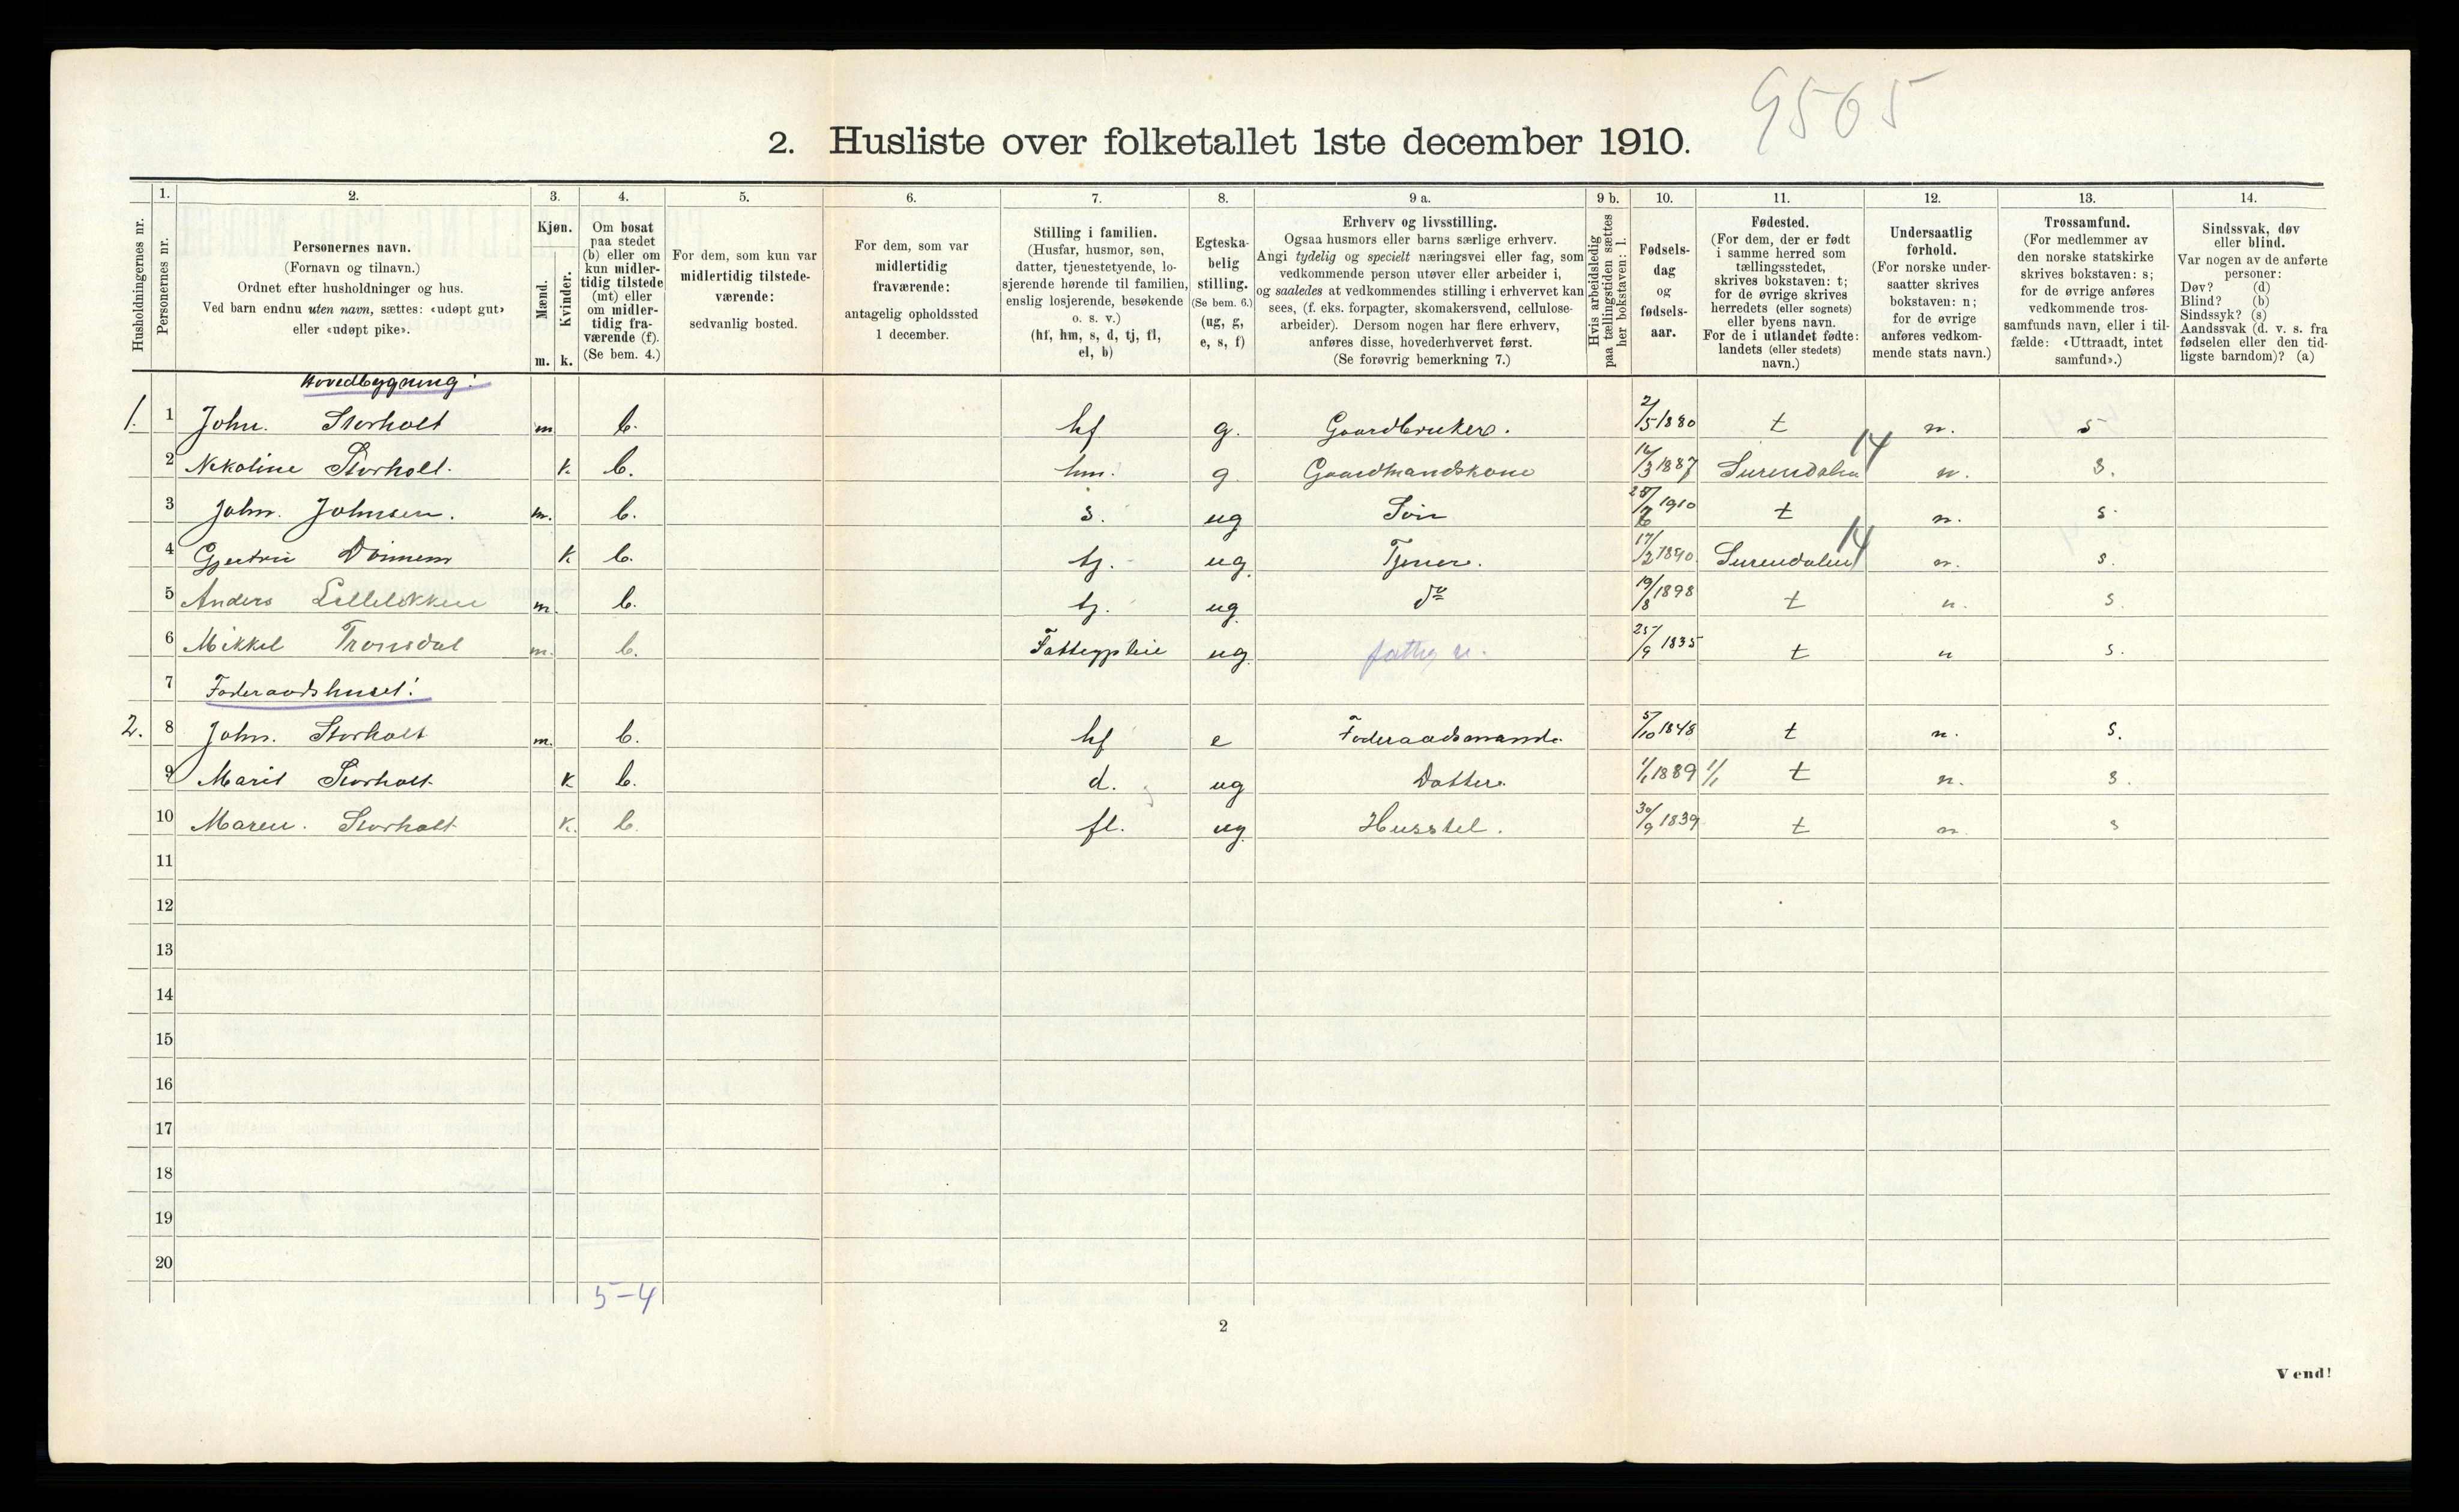 9565
2. Husliste over folketallet 1ste december 1910.
Husholdningernes nr.
1. Personernes nr.
2. Personernes navn. (Fornavn og tilnavn.) Ordnet efter husholdninger og hus. Ved barn endnu uten navn, sættes: «udøpt gut» eller «udøpt pike».
3. Kjøn. Mænd. m. Kvinder. k.
4. Om bosat paa stedet (b) eller om kun midlertidig tilstede (mt) eller om midlertidig fraværende (f). (Se bem. 4.)
5. For dem, som kun var midlertidig tilstedeværende: sedvanlig bosted.
6. For dem, som var midlertidig fraværende: antagelig opholdssted 1 december.
7. Stilling i familien. (Husfar, husmor, søn, datter, tjenestetyende, losjerende hørende til familien, enslig losjerende, besøkende o. s. v.) (hf, hm, s, d, tj, fl, el, b)
8. Egteskabelig stilling. (Se bem. 6.) (ug, g, e, s, f)
9 a. Erhverv og livsstilling. Ogsaa husmors eller barns særlige erhverv. Angi tydelig og specielt næringsvei eller fag, som vedkommende person utøver eller arbeider i, og saaledes at vedkommendes stilling i erhvervet kan sees, (f. eks. forpagter, skomakersvend, cellulosearbeider). Dersom nogen har flere erhverv, anføres disse, hovederhvervet først. (Se forøvrig bemerkning 7.)
9 b. Hvis arbeidsledig paa tællingstiden sættes her bokstaven: l.
10. Fødselsdag og fødselsaar.
11. Fødested. (For dem, der er født i samme herred som tællingsstedet, skrives bokstaven: t; for de øvrige skrives herredets (eller sognets) eller byens navn. For de i utlandet fødte: landets (eller stedets) navn.)
12. Undersaatlig forhold. (For norske undersaatter skrives bokstaven: n; for de øvrige anføres vedkommende stats navn.)
13. Trossamfund. (For medlemmer av den norske statskirke skrives bokstaven: s; for de øvrige anføres vedkommende trossamfunds navn, eller i tilfælde: «Uttraadt, intet samfund».)
14. Sindssvak, døv eller blind. Var nogen av de anførte personer: Døv? (d) Blind? (b) Sindssyk? (s) Aandssvak (d. v. s. fra fødselen eller den tidligste barndom)? (a)
Hovedbygning!
1. 1 John. Storholt m b. hf g. Gaardbruker. 2/5 1880 t n. s
2 Nekoline Storholt. k. b. hm. g Gaardmandskone 16/3 1887 Surendalen 14 n. s.
3 John. Johnsen. m. b. s. ug Søn 1910 t n. s.
4 Gjertrü k b. tj. ug. Tjener. 17/2 1890. Surendalen 14 n. s.
5 Anders Lilleløkken m. b. tj. ug. do 19/8 1898 t n. s.
6 Mikkel Tronsdal m. b. Fattigpleie ug. fattig u. 25/9 1835 t n s.
7 Føderaadshuset!
2. 8 John. Storholt m. b. hf e Føderaadsmand. 5/10 1848 t n. s.
9 Marit Storholt. k b. d. ug Datter. 1/1 1889 1/1 t n. s.
10 Maren. Storholt k. b. fl. ug. Husstel. 30/9 1839 t n. s
11
12
13
14
15
16
17
18
19
20
5-4
2
Vend!